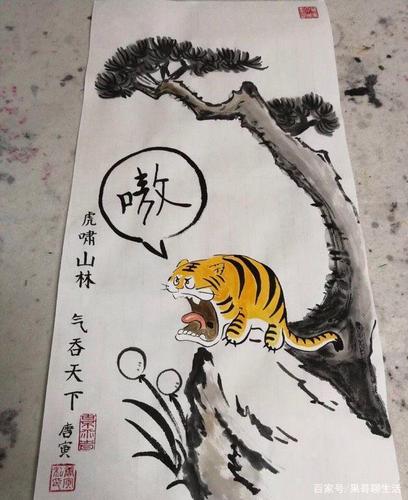 嗷
虎啸山林 气吞天下
唐寅
百家号/果哥聊生活